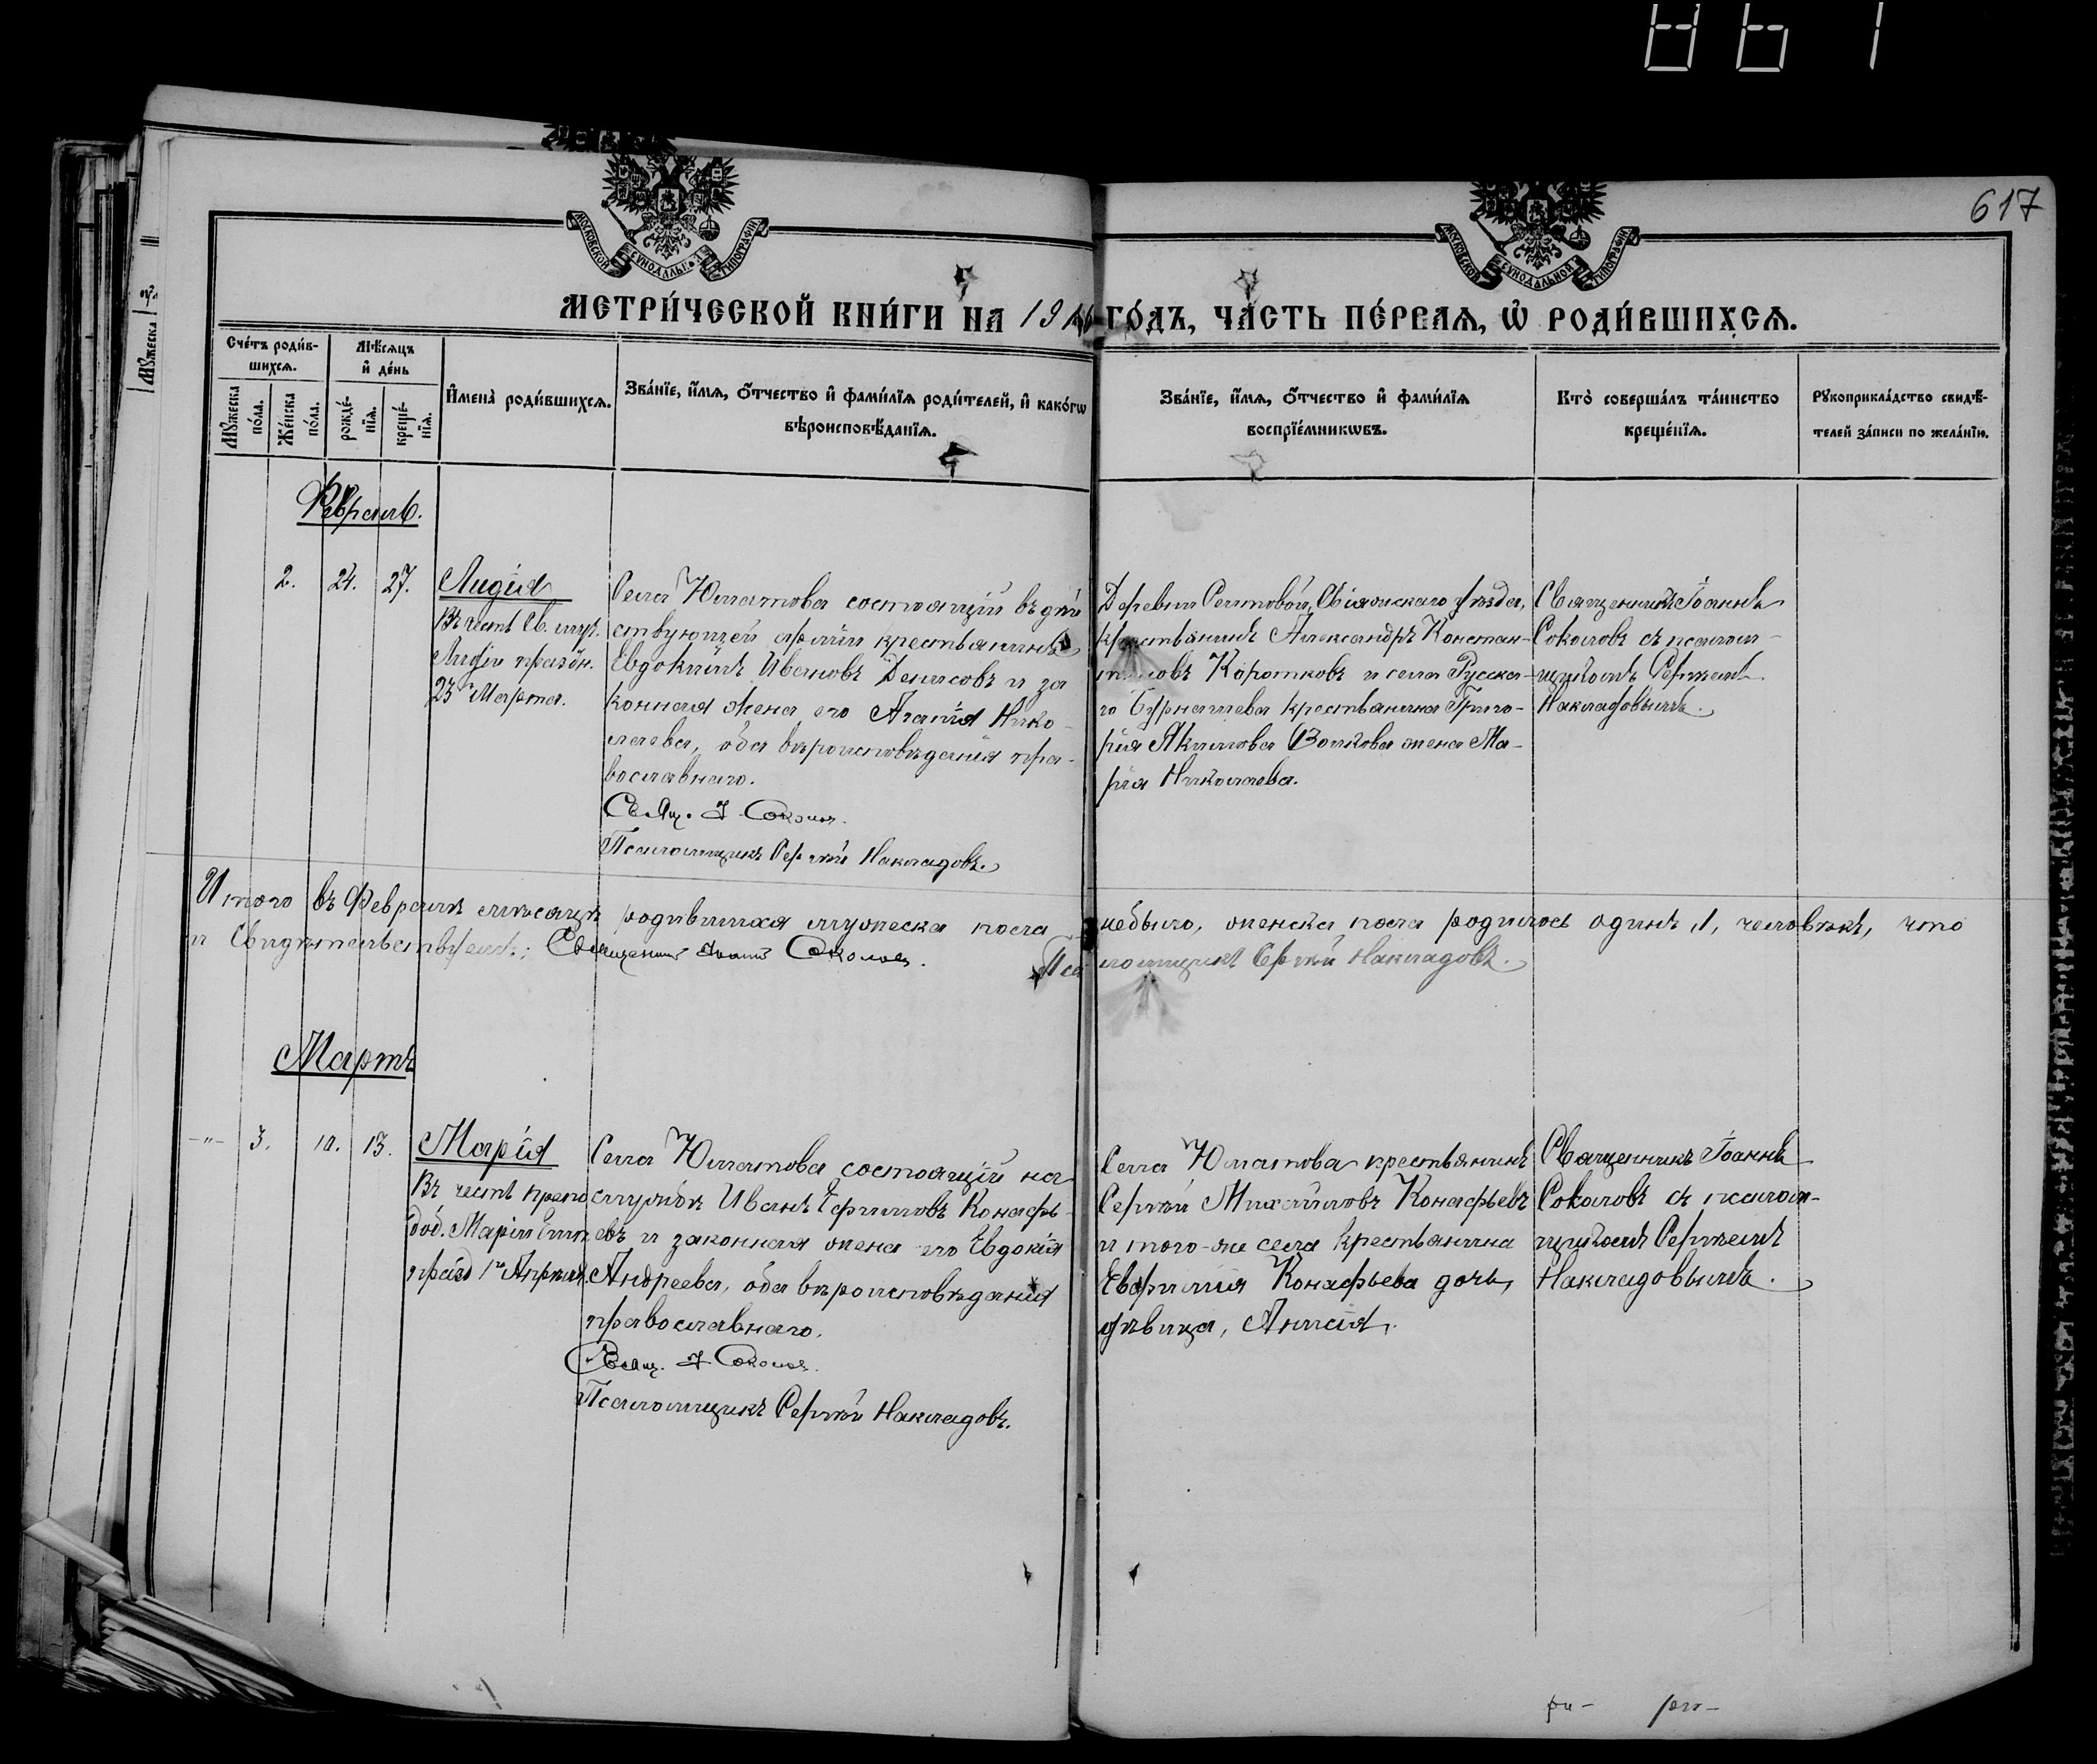 861
617
МОСКОВСКОЙ СѴНОДАЛЬНОЙ ТИПОГРАФІИ
МОСКОВСКОЙ СѴНОДАЛЬНОЙ ТИПОГРАФІИ
МЕТРИ́ЧЕСКОЙ КНИ́ГИ НА 1916 ГО́ДЪ, ЧА́СТЬ ПЕ́РВАЯ, Ѡ РОДИ́ВШИХСЯ.
Сче́тъ роди́в-
шихся.
Мꙋ́жеска по́ла.
Же́нска по́ла.
Мѣ́сяцъ
и де́нь
рожде́-
нїя.
креще́-
нїя.
Имена̀ роди́вшихся.
Зва́нїе, и́мя, о́тчество и фами́лїя роди́телей, и како́гѡ
вѣроисповѣ́данїя.
Зва́нїе, и́мя, о́тчество и фами́лїя
воспрїе́мникѡвъ.
Кто̀ соверша́лъ та́инство
креще́нїя.
Рꙋкоприкла́дство свидѣ́-
телей за́писи по жела́нїю.
Февраль.
2. 24. 27.
Лидія
Въ честь Св. муч.
Лидіи праздн.
23 Марта.
Села Юматова состоящій въ дѣй
ствующей арміи крестьянинъ
Евдокимъ Ивановъ Денисовъ и за
конная жена его Агапія Нико-
лаева, оба вѣроисповѣданія пра-
вославнаго.
Свящ. І Соколов.
Псаломщикъ Сергѣй Накладовъ.
Деревни Сентовой, Свіяжскаго уѣзда,
крестьянинъ Александръ Констан-
тиновъ Коротковъ и села Русска-
го Бурнашева крестьянина Григо-
рія Якимова Волкова жена Ма-
рія Николаева.
Священникъ Іоаннъ
Соколовъ съ псалом-
щикомъ Сергѣемъ
Накладовымъ.
Итого въ Февралѣ мѣсяцѣ родившихся мужеска пола небыло, женска пола родилось одинъ, 1, человѣкъ, что
и свидѣтельствуемъ: Священник Іоанн Соколов. Псаломщикъ Сергѣй Накладовъ.
Мартъ
-"- 3. 10. 13.
Марія
Въ честь препо
доб. Маріи Египт
празд 1го Апрѣля.
Села Юматова состоящій на
службѣ Иванъ Ефимовъ Конафь-
евъ и законная жена его Евдокія
Андреева, оба вѣроисповѣданія
православнаго.
Свящ. І Соколов.
Псаломщикъ Сергѣй Накладовъ.
Села Юматова крестьянинъ
Сергѣй Михайловъ Конафьевъ
и того-же села крестьянина
Евфимія Конафьева дочь,
дѣвица, Анисія.
Священникъ Іоаннъ
Соколовъ съ псалом-
щикомъ Сергѣемъ
Накладовымъ.